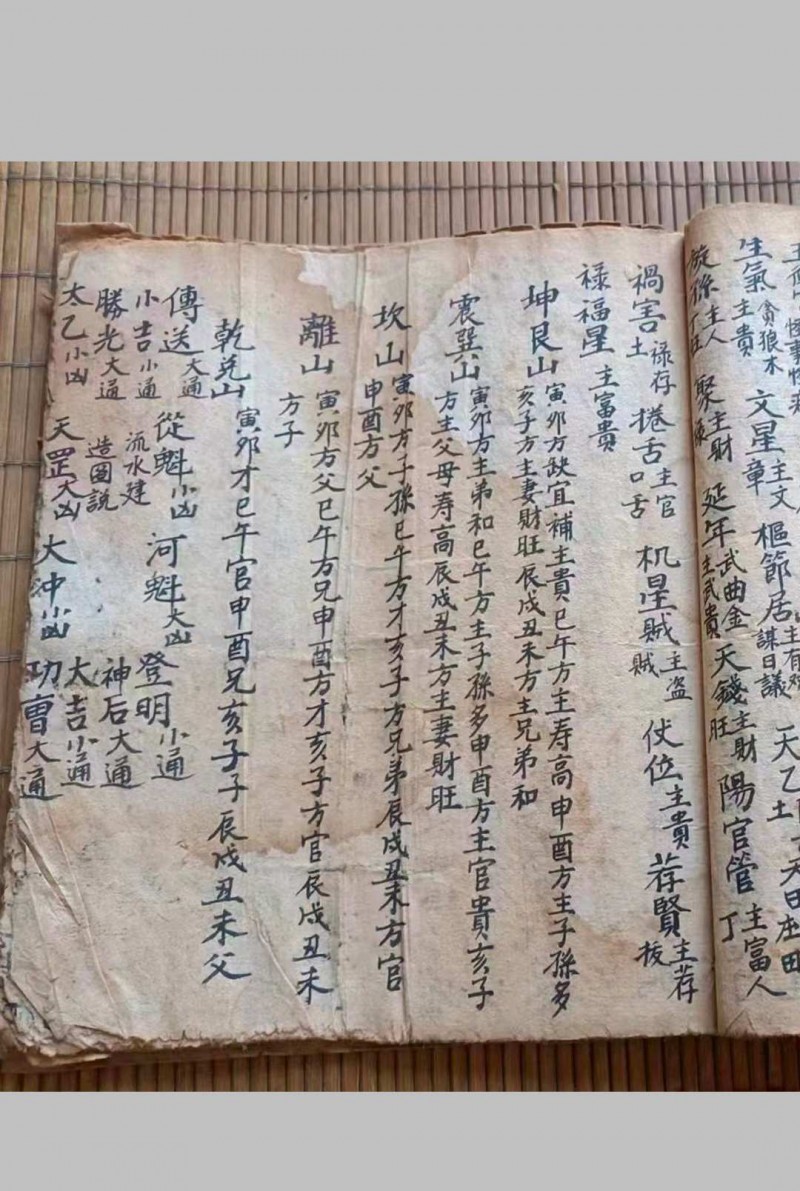 生氣 貪狼木 主貴 文星 主文章 樞節居 謀日議
旋孫 主人丁旺 聚 主財 延年 武曲金 主武貴 天錢 主財旺 陽官管 主富人丁
禍害 祿存土 捲舌 主官口舌 机星賊 主盜賊 仗位 主貴 荐賢 主荐拔
祿福星 主富貴
坤艮山 寅卯方缺宜補主貴巳午方主寿高申酉方主子孫多
亥子方主妻財旺辰戌丑未方主兄弟和
震巽山 寅卯方主弟和巳午方主子孫多申酉方主官貴亥子
方主父母寿高辰戌丑未方主妻財旺
坎山 寅卯方子孫巳午方才亥子方兄弟辰戌丑未方官
申酉方父
離山 寅卯方父巳午方兄申酉方才亥子方官辰戌丑未
方子
乾兌山 寅卯才巳午官申酉兄亥子子辰戌丑未父
傳送大通 從魁小凶 河魁大凶 登明小通
小吉小通 流水建 神后大通
勝光大通 造圖説 大吉小通
太乙小凶 天罡大凶 大冲小凶 功曹大通